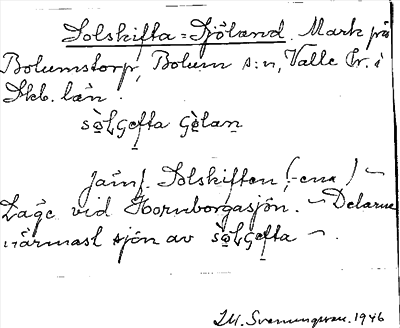 Solskifta = Sjöland. Mark på
Bolumstorp, Bolum s:n, Valle hr. i
Skb. län.
sòlʃefta ʃö̀lan
Jämf. Solskiften (-ena) ~
Läge vid Hornborgasjön. ~ Delarne
närmast sjön av sòlʃefta ~.
Svenungsson. 1946